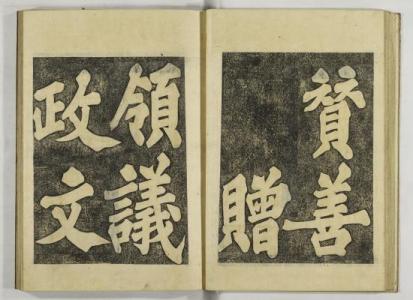 贊善
贈
領議
政文